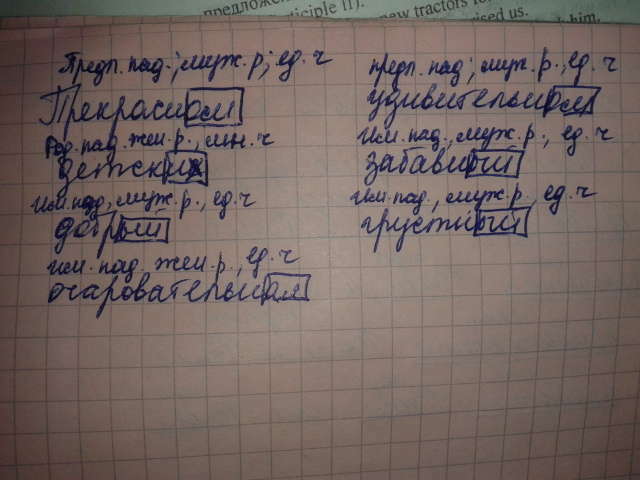 предложе
ticiple II).
new tractors fo
ised us.
him.
Предл. пад.; муж. р; ед. ч
Прекрасном
Род. пад. жен. р., мн. ч
детских
Им. пад, муж. р., ед. ч
добрый
Им. пад. жен. р., ед. ч
очаровательная
предл. пад; муж. р., ед. ч
удивительном
Им. пад., муж. р., ед. ч
забавный
Им. пад., муж. р., ед. ч
грустный